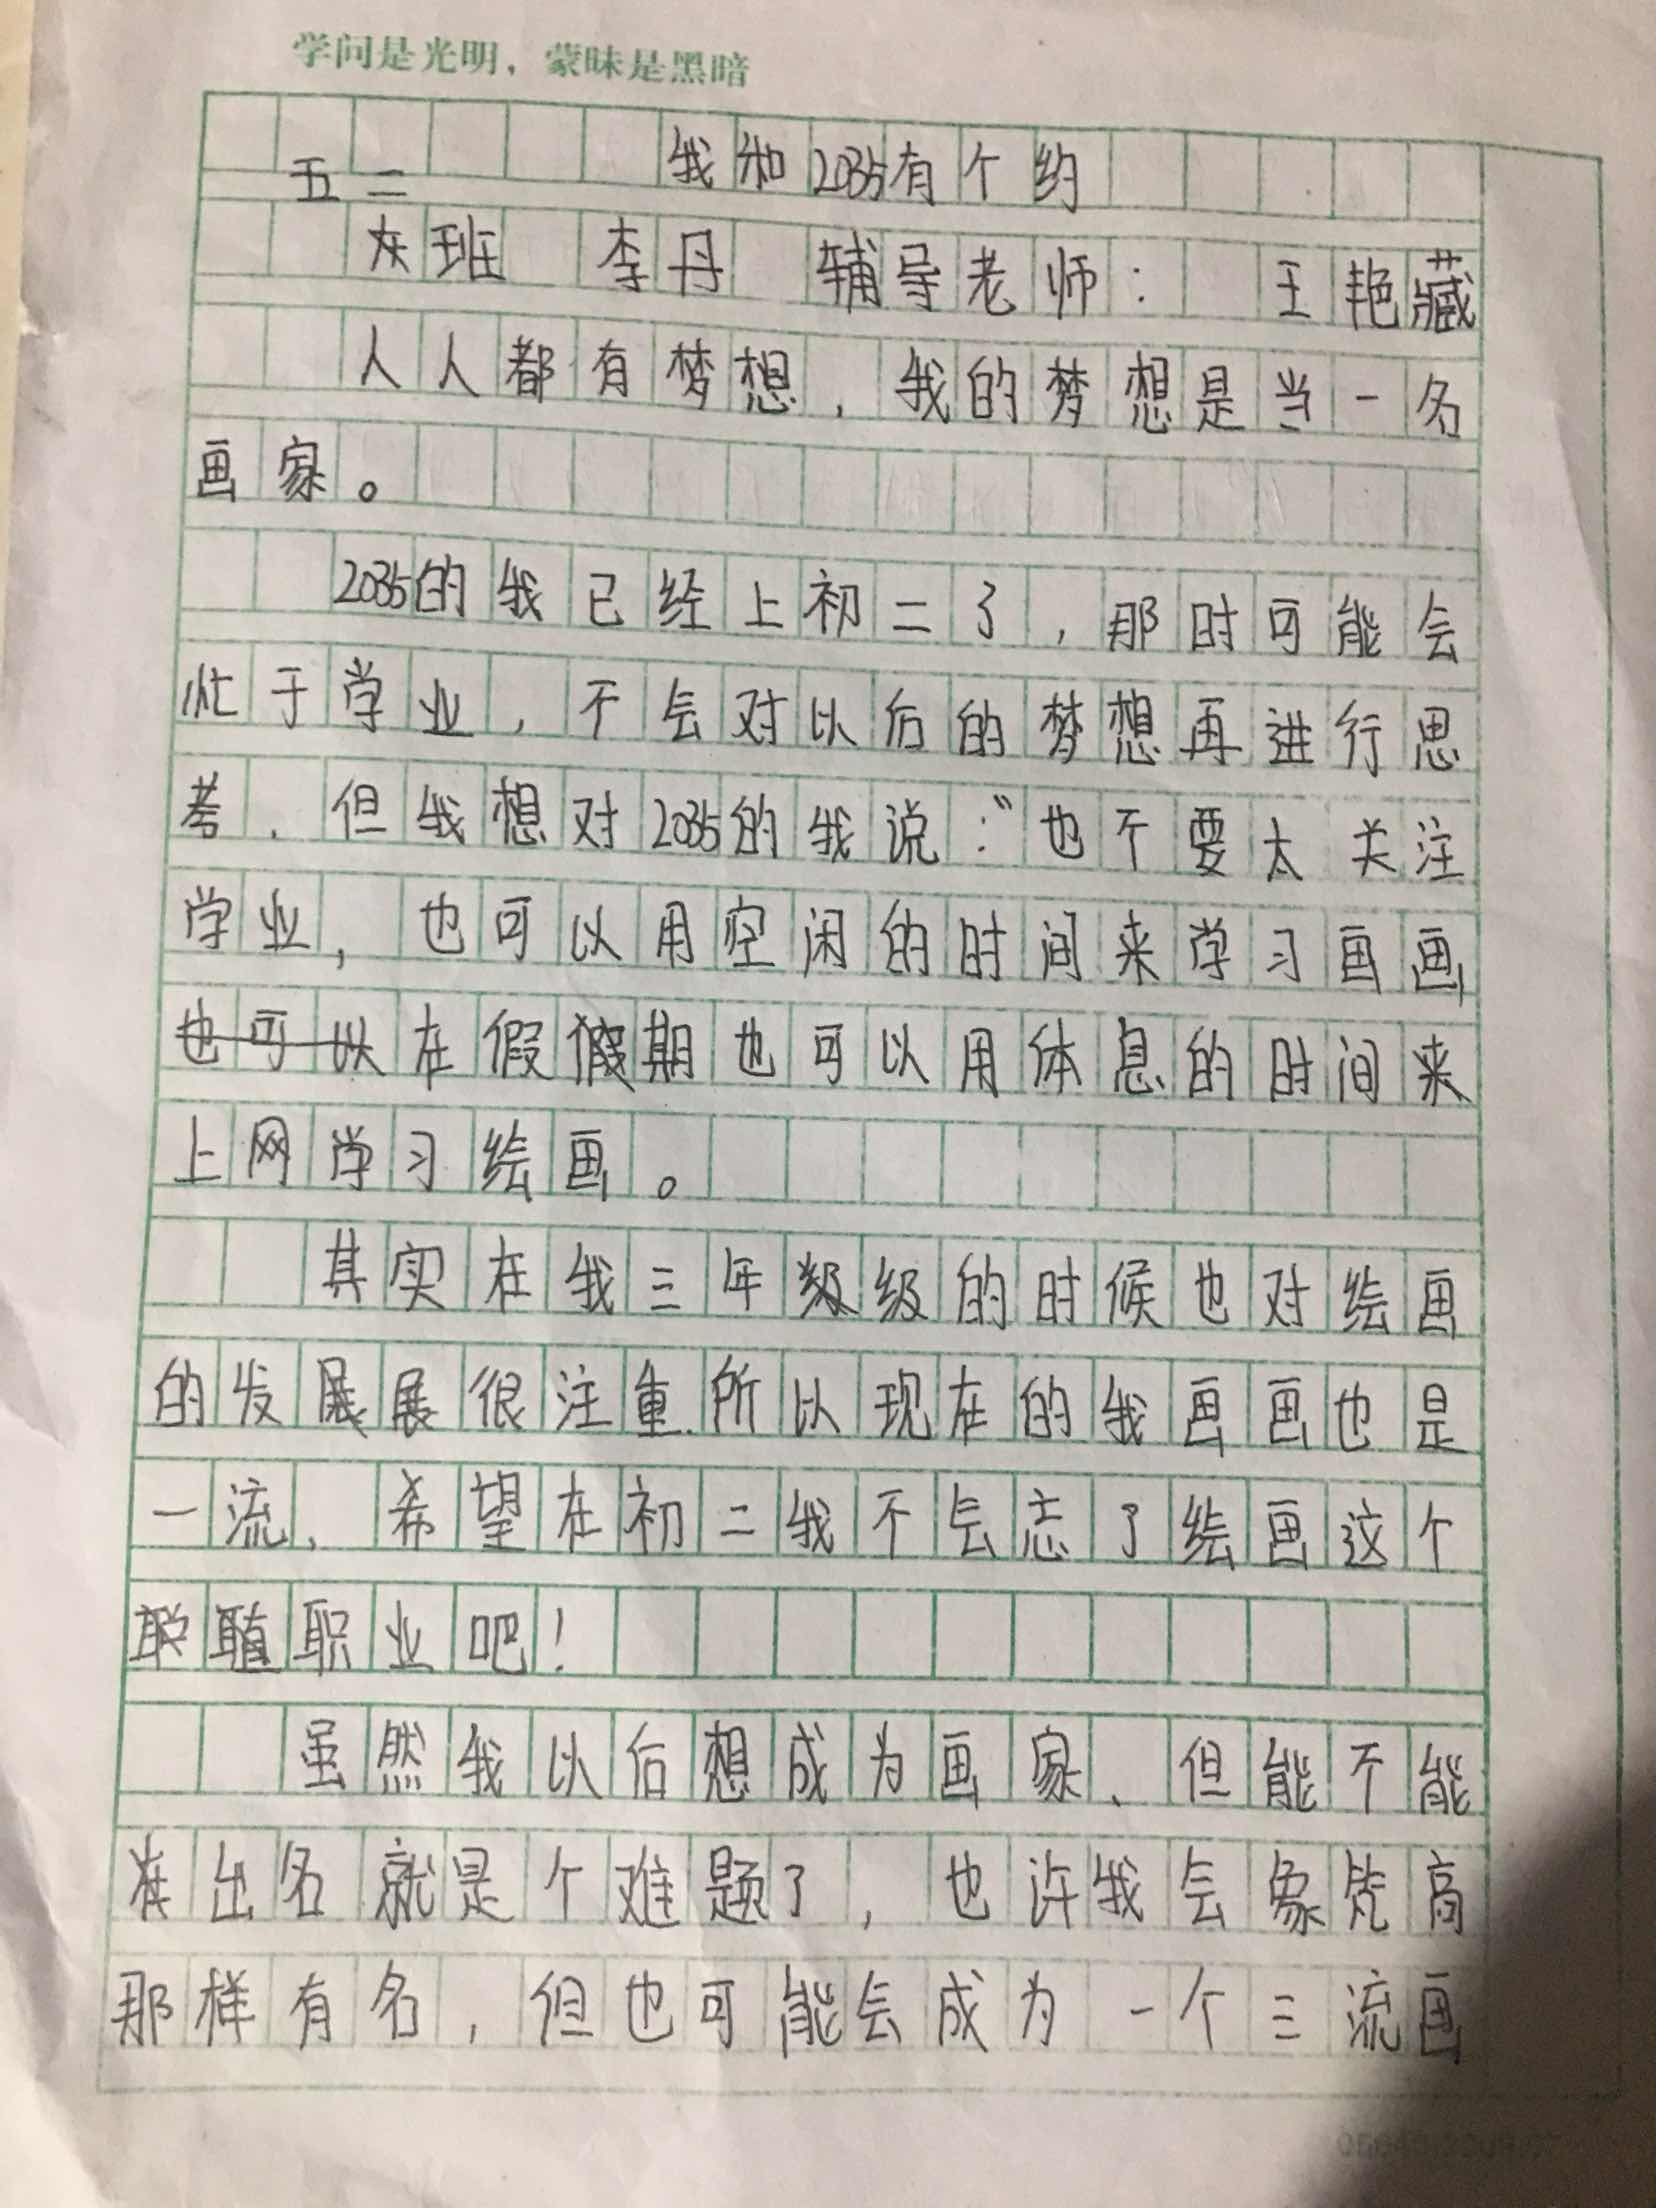 学问是光明，蒙昧是黑暗
我和2035有个约
五二
班 李丹 辅导老师： 王艳藏
人人都有梦想，我的梦想是当一名
画家。
2035的我已经上初二了，那时可能会
忙于学业，不会对以后的梦想再进行思
考，但我想对2035的我说：“也不要太关注
学业，也可以用空闲的时间来学习画画
在假期也可以用休息的时间来
上网学习绘画。
其实在我三年级的时候也对绘画
的发展很注重.所以现在的我画画也是
一流，希望在初二我不会忘了绘画这个
职业吧！
虽然我以后想成为画家、但能不能
出名就是个难题了，也许我会象梵高
那样有名，但也可能会成为一个三流画